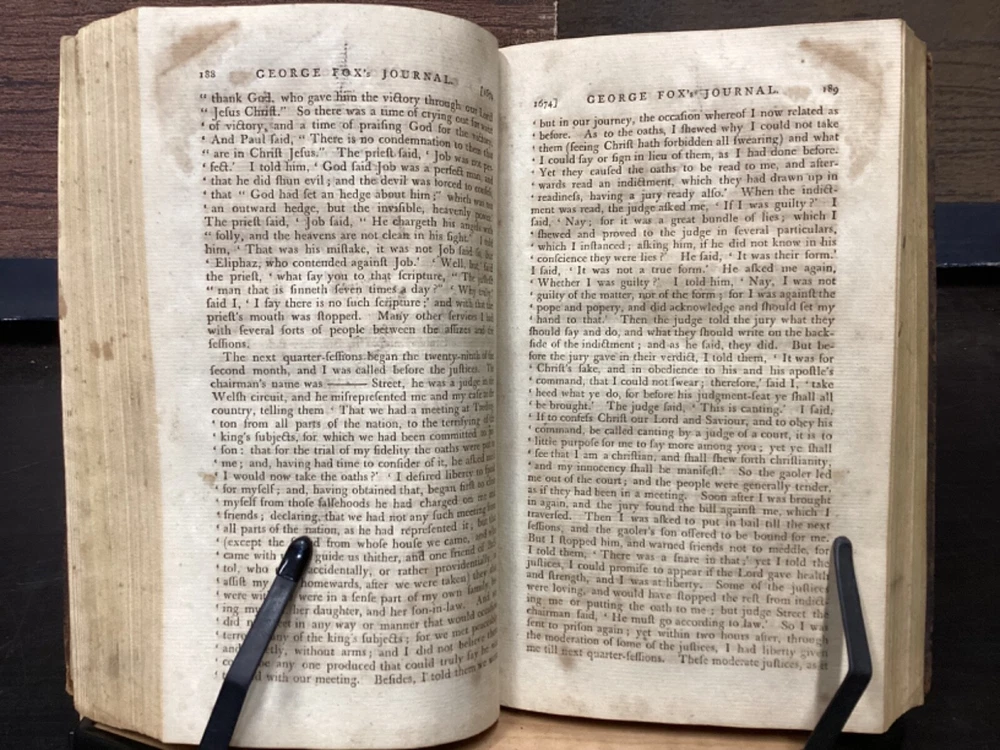 188 GEORGE FOX's JOURNAL.
“ thank God, who gave him the victory through our Lord
“ Jesus Chriſt.” So there was a time of crying out for want
‘ of victory, and a time of praiſing God for the victory.
‘ And Paul ſaid, “ There is no condemnation to them that
‘ are in Chriſt Jeſus.” The prieſt ſaid, ‘ Job was not per-
‘ fect.’ I told him, ‘ God ſaid Job was a perfect man, and
‘ that he did ſhun evil ; and the devil was forced to confeſs,
‘ that “ God had ſet an hedge about him ;” which was not
‘ an outward hedge, but the inviſible, heavenly power.’
The prieſt ſaid, ‘ Job ſaid, “ He chargeth his angels with
“ folly, and the heavens are not clean in his ſight.’ I told
him, ‘ That was his miſtake, it was not Job ſaid ſo, but
‘ Eliphaz, who contended againſt Job.’ ‘ Well, but,’ ſaid
the prieſt, ‘ what ſay you to that ſcripture, “ The juſteſt
“ man that is ſinneth ſeven times a day ?” ‘ Why truly,’
ſaid I, ‘ I ſay there is no ſuch ſcripture ;’ and with that the
prieſt's mouth was ſtopped. Many other ſervices I had
with ſeveral ſorts of people between the aſſizes and the
ſeſſions.
The next quarter-ſeſſions began the twenty-ninth of the
ſecond month, and I was called before the juſtices. The
chairman's name was ——— Street, he was a judge in the
Welſh circuit, and he miſrepreſented me and my caſe to the
country, telling them ‘ That we had a meeting at
‘ ton from all parts of the nation, to the terrifying of the
‘ king's ſubjects, for which we had been committed to pri-
‘ ſon : that for the trial of my fidelity the oaths were put to
‘ me ; and, having had time to conſider of it, he aſked me if
‘ I would now take the oaths ?’ I deſired liberty to ſpeak
‘ for myſelf ; and, having obtained that, began firſt to clear
‘ myſelf from thoſe falſehoods he had charged on me and
‘ friends ; declaring, that we had not any ſuch meeting from
‘ all parts of the nation, as he had repreſented it ; but that
‘ (except the from whoſe houſe we came, and who
‘ came with guide us thither, and one friend of
‘ tol, who accidentally, or rather providentially, to
‘ aſſiſt my homewards, after we were taken) they that
‘ were with were in a ſenſe part of my own family, be-
‘ ing my her daughter, and her ſon-in-law. And we
‘ did n in any way or manner that would occaſion
‘ terro any of the king's ſubjects ; for we met peaceably
‘ and tly, without arms ; and I did not believe there
‘ co be any one produced that could truly ſay he was
‘ t d with our meeting. Beſides, I told them we were
1674] GEORGE FOX's JOURNAL. 189
‘ but in our journey, the occaſion whereof I now related as
‘ before. As to the oaths, I ſhewed why I could not take
‘ them (ſeeing Chriſt hath forbidden all ſwearing) and what
‘ I could ſay or ſign in lieu of them, as I had done before.
‘ Yet they cauſed the oaths to be read to me, and after-
‘ wards read an indictment, which they had drawn up in
‘ readineſs, having a jury ready alſo.’ When the indict-
ment was read, the judge aſked me, ‘ If I was guilty ?’ I
ſaid, ‘ Nay ; for it was a great bundle of lies ; which I
‘ ſhewed and proved to the judge in ſeveral particulars,
‘ which I inſtanced ; aſking him, if he did not know in his
‘ conſcience they were lies ?’ He ſaid, ‘ It was their form.’
I ſaid, ‘ It was not a true form.’ He aſked me again,
‘ Whether I was guilty ?’ I told him, ‘ Nay, I was not
‘ guilty of the matter, nor of the form ; for I was againſt the
‘ pope and popery, and did acknowledge and ſhould ſet my
‘ hand to that.’ Then the judge told the jury what they
ſhould ſay and do, and what they ſhould write on the back-
ſide of the indictment ; and as he ſaid, they did. But be-
fore the jury gave in their verdict, I told them, ‘ It was for
‘ Chriſt's ſake, and in obedience to his and his apoſtle's
‘ command, that I could not ſwear ; therefore,’ ſaid I, ‘ take
‘ heed what ye do, for before his judgment-ſeat ye ſhall all
‘ be brought.’ The judge ſaid, ‘ This is canting.’ I ſaid,
‘ If to confeſs Chriſt our Lord and Saviour, and to obey his
‘ command, be called canting by a judge of a court, it is to
‘ little purpoſe for me to ſay more among you ; yet ye ſhall
‘ ſee that I am a chriſtian, and ſhall ſhew forth chriſtianity,
‘ and my innocency ſhall be manifeſt.’ So the gaoler led
me out of the court ; and the people were generally tender,
as if they had been in a meeting. Soon after I was brought
in again, and the jury found the bill againſt me, which I
traverſed. Then I was aſked to put in bail till the next
ſeſſions, and the gaoler's ſon offered to be bound for me.
But I ſtopped him, and warned friends not to meddle, for
I told them, ‘ There was a ſnare in that ;’ yet I told the
juſtices, I could promiſe to appear if the Lord gave health
and ſtrength, and I was at liberty. Some of the juſtices
were loving, and would have ſtopped the reſt from indict-
ing me or putting the oath to me ; but judge Street the
chairman ſaid, ‘ He muſt go according to law.’ So I was
ſent to priſon again ; yet within two hours after, through
the moderation of ſome of the juſtices, I had liberty given
me till next quarter-ſeſſions. Theſe moderate juſtices, as it